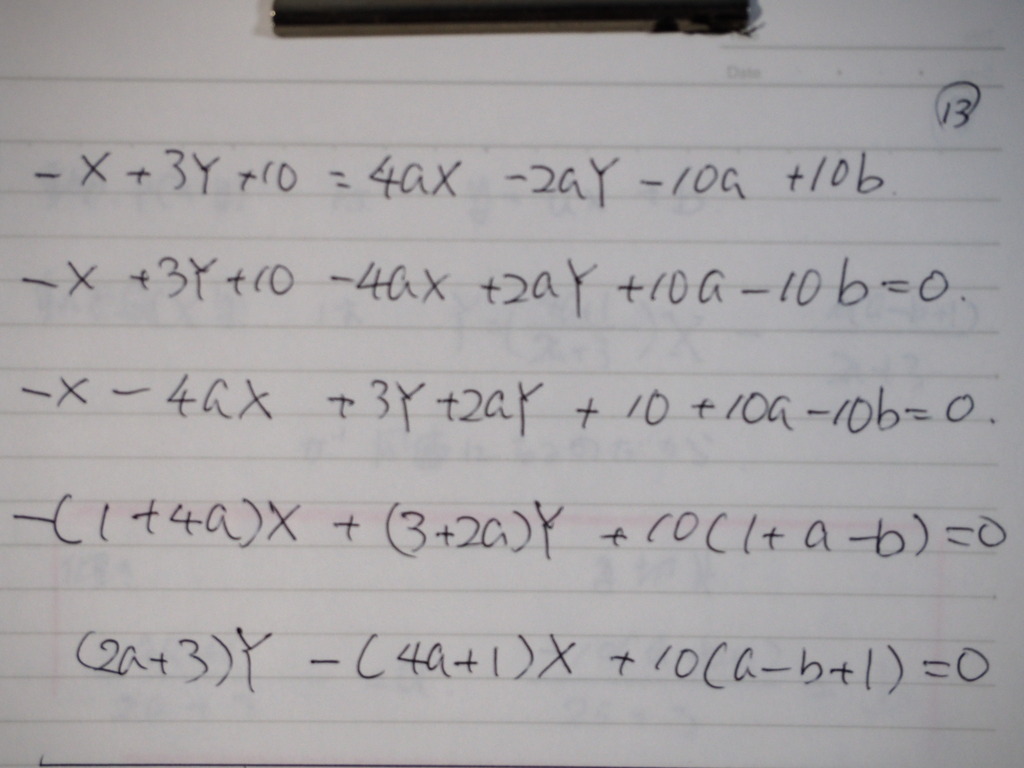 Date
13
-X+3Y+10=4aX-2aY-10a+10b.
-X+3Y+10-4aX+2aY+10a-10b=0.
-X-4aX+3Y+2aY+10+10a-10b=0.
-(1+4a)X+(3+2a)Y+10(1+a-b)=0
(2a+3)Y-(4a+1)X+10(a-b+1)=0